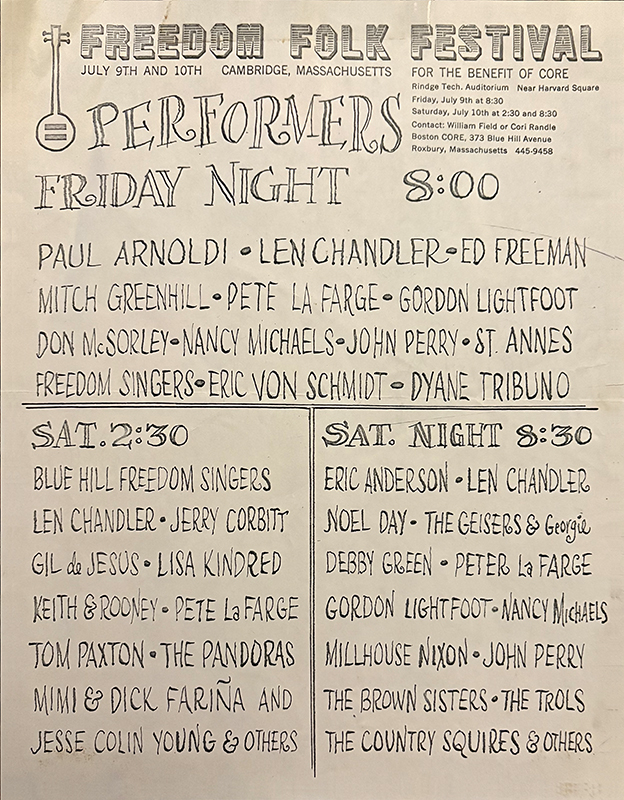 FREEDOM FOLK FESTIVAL
JULY 9TH AND 10TH CAMBRIDGE, MASSACHUSETTS FOR THE BENEFIT OF CORE
Ringe Tech. Auditorium Near Harvard Square
Friday, July 9th at 8:30
Saturday, July 10th at 2:30 and 8:30
Contact: William Field or Cori Randle
Boston CORE, 373 Blue Hill Avenue
Roxbury, Massachusetts 445-9458
PERFORMERS
FRIDAY NIGHT 8:00
PAUL ARNOLDI • LEN CHANDLER • ED FREEMAN
MITCH GREENHILL • PETE LA FARGE • GORDON LIGHTFOOT
DON McSORLEY • NANCY MICHAELS • JOHN PERRY • ST. ANNES
FREEDOM SINGERS • ERIC VON SCHMIDT • DYANE TRIBUNO
SAT. 2:30
BLUE HILL FREEDOM SINGERS
LEN CHANDLER • JERRY CORBITT
GIL de JESUS • LISA KINDRED
KEITH & ROONEY • PETE La FARGE
TOM PAXTON • THE PANDORAS
MIMI & DICK FARIÑA AND
JESSE COLIN YOUNG & OTHERS
SAT. NIGHT 8:30
ERIC ANDERSON • LEN CHANDLER
NOEL DAY • THE GEISERS & Georgie
DEBBY GREEN • PETER La FARGE
GORDON LIGHTFOOT • NANCY MICHAELS
MILLHOUSE NIXON • JOHN PERRY
THE BROWN SISTERS • THE TROLS
THE COUNTRY SQUIRES & OTHERS